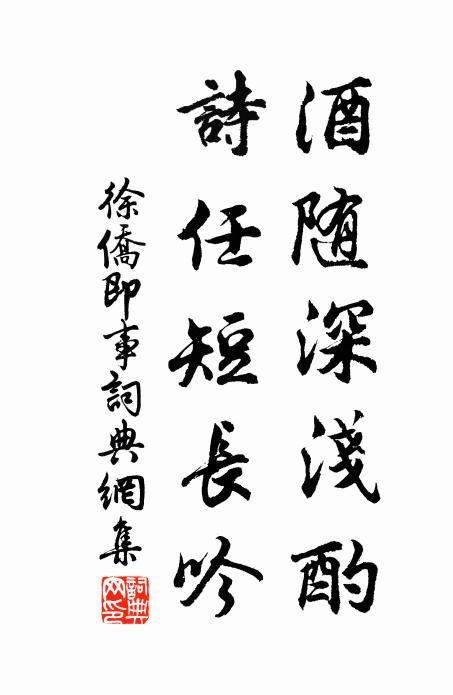 酒随深淺酌
詩任短長吟
徐僑即事詞典網集
詞典網印